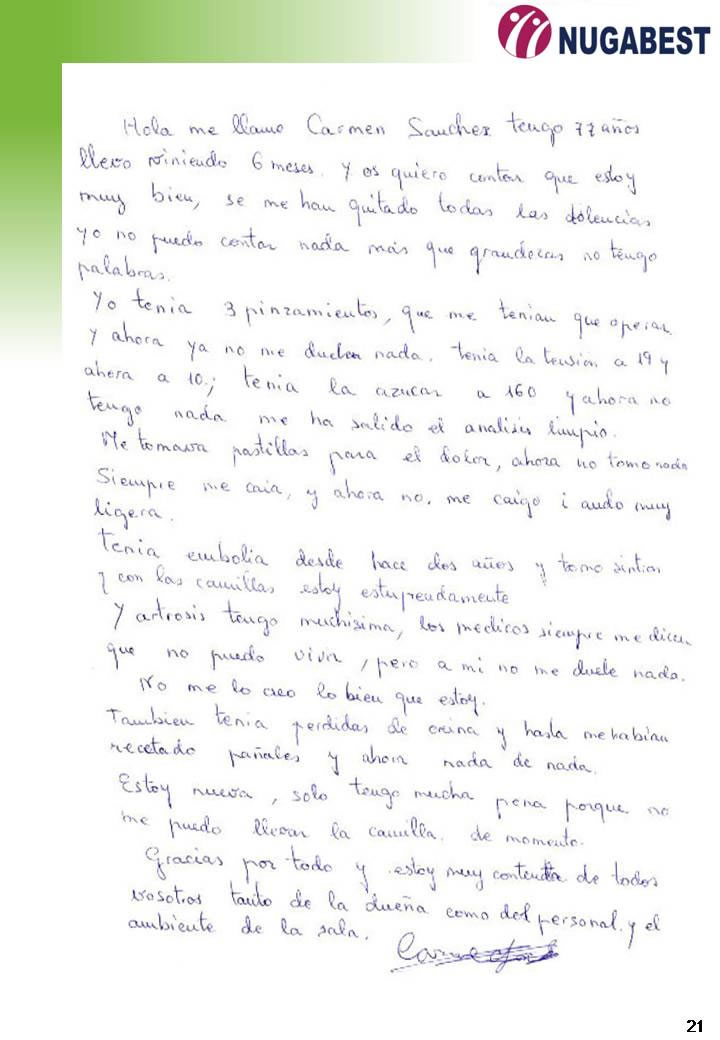 NUGABEST
Hola me llamo Carmen Sanchez tengo 77 años
llevo viniendo 6 meses. y os quiero contar que estoy
muy bien, se me han quitado todas las dolencias
yo no puedo contar nada más que grandezas no tengo
palabras.
Yo tenia 3 pinzamientos, que me tenian que operar
y ahora ya no me duelen nada. tenia la tensión a 19 y
ahora a 10.; tenia la azucar a 160 y ahora no
tengo nada me ha salido el analisis limpio.
Me tomava pastillas para el dolor, ahora no tomo nada
Siempre me caia, y ahora no. me caigo i ando muy
ligera.
tenia embolia desde hace dos años y tomo
y con las camillas estoy estupendamente
Y artrosis tengo muchisima, los medicos siempre me dicen
que no puedo vivir, pero a mi no me duele nada.
No me lo creo lo bien que estoy.
Tambien tenia perdidas de orina y hasta me habian
recetado pañales y ahora nada de nada.
Estoy nueva, solo tengo mucha pena porque no
me puedo llevar la camilla. de momento.
Gracias por todo y estoy muy contenta de todos
vosotros tanto de la dueña como del personal. y el
ambiente de la sala.
21